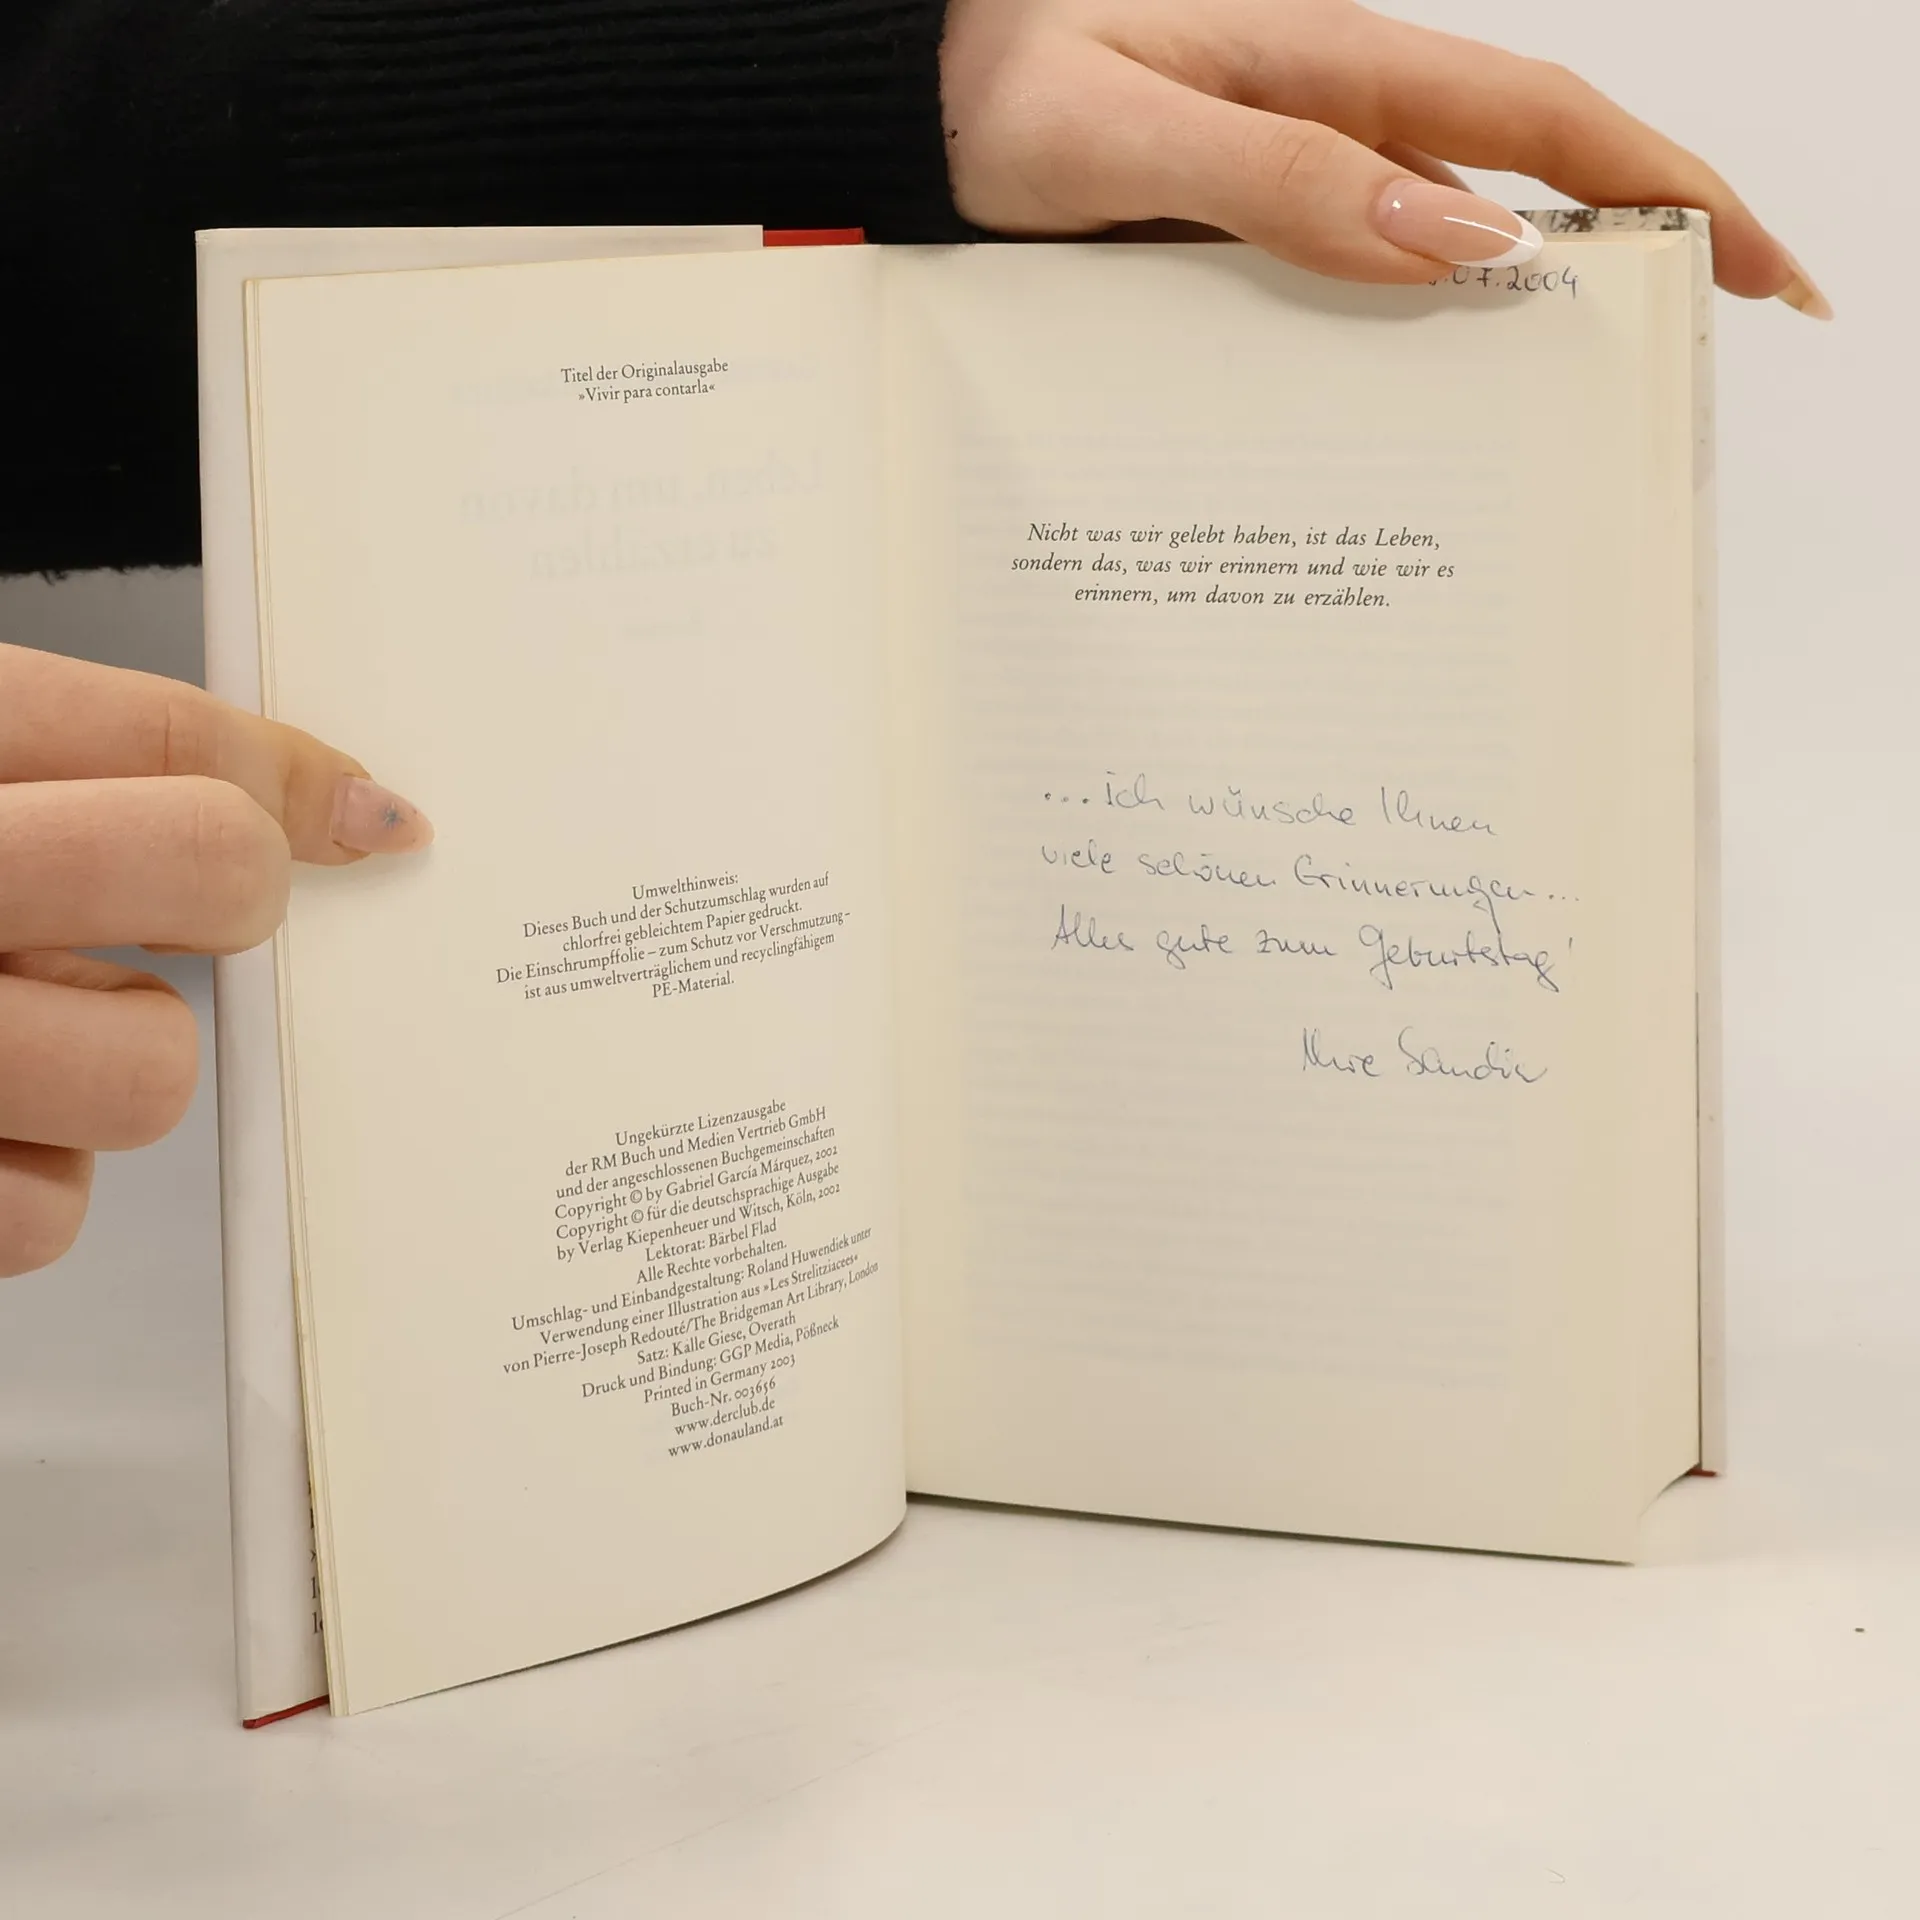 Titel der Originalausgabe
»Vivir para contarla«
Umwelthinweis:
Dieses Buch und der Schutzumschlag wurden auf
chlorfrei gebleichtem Papier gedruckt.
Die Einschrumpffolie – zum Schutz vor Verschmutzung –
ist aus umweltverträglichem und recyclingfähigem
PE-Material.
Ungekürzte Lizenzausgabe
der RM Buch und Medien Vertrieb GmbH
und der angeschlossenen Buchgemeinschaften
Copyright © by Gabriel García Márquez, 2002
Copyright © für die deutschsprachige Ausgabe
by Verlag Kiepenheuer und Witsch, Köln, 2002
Lektorat: Bärbel Flad
Alle Rechte vorbehalten.
Umschlag- und Einbandgestaltung: Roland Huwendiek unter
Verwendung einer Illustration aus »Les Strelitziacees«
von Pierre-Joseph Redouté/The Bridgeman Art Library, London
Satz: Kalle Giese, Overath
Druck und Bindung: GGP Media, Pößneck
Printed in Germany 2003
Buch-Nr. 003656
www.derclub.de
www.donauland.at
.07.2004
Nicht was wir gelebt haben, ist das Leben,
sondern das, was wir erinnern und wie wir es
erinnern, um davon zu erzählen.
... ich wünsche Ihnen
viele schönen Erinnerungen...
Alles gute zum Geburtstag!
Ihre